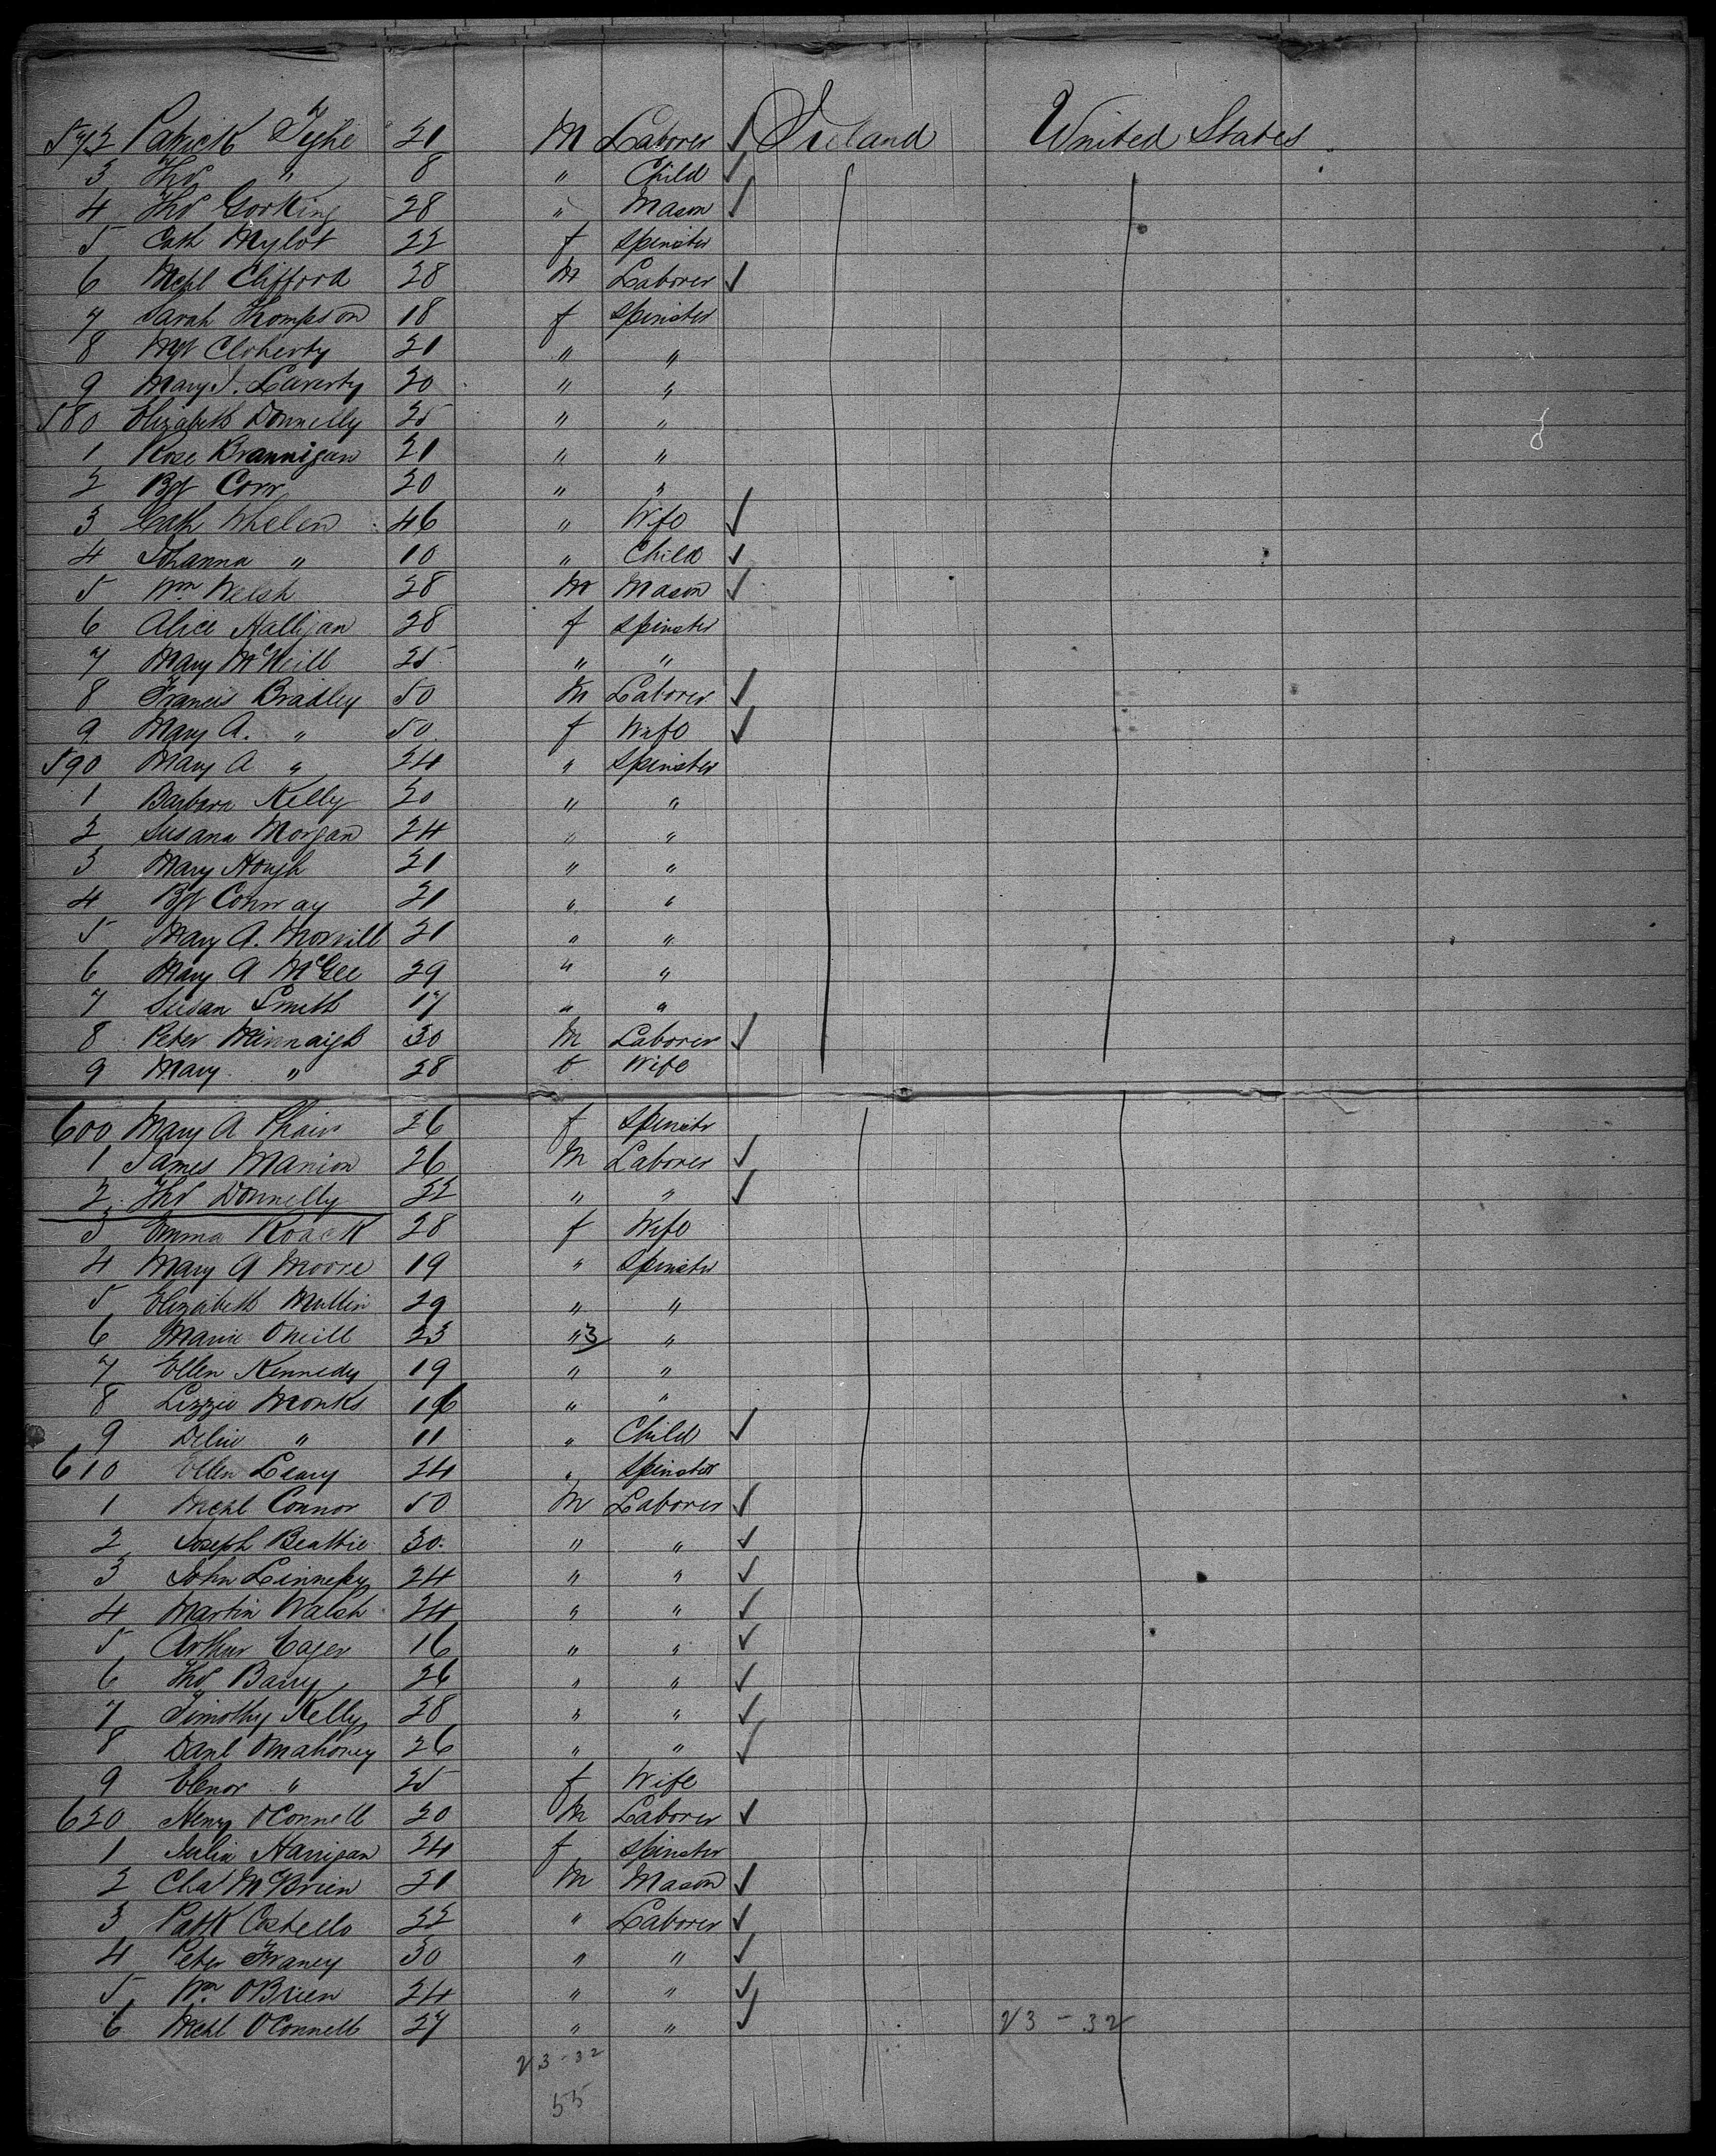 572 Patrick Tyhe 21 M Laborer ✓ Ireland United States
3 Thos " 8 " Child ✓
4 Thos Gorking 28 " Mason ✓
5 Cath Mylot 22 f Spinster
6 Mchl Clifford 28 M Laborer ✓
7 Sarah Thompson 18 f Spinster
8 Mgt Cloherty 21 " "
9 Mary J. Laverty 20 " "
580 Elizabeth Donnelly 25 " "
1 Rose Brannigan 21 " "
2 Bgt Corr 20 " "
3 Cath Whelen 46 " Wife ✓
4 Johanna " 10 " Child ✓
5 Wm Welsh 28 M Mason ✓
6 Alice Halligan 28 f Spinster
7 Mary McNeill 25 " "
8 Francis Bradley 50 M Laborer ✓
9 Mary A. " 50 f Wife ✓
590 Mary A " 24 " Spinster
1 Barbara Kelly 20 " "
2 Susana Morgan 24 " "
3 Mary Hough 21 " "
4 Bgt Conway 21 " "
5 Mary A. Morrill 21 " "
6 Mary A McGee 29 " "
7 Susan Smith 17 " "
8 Peter 30 M Laborer ✓
9 Mary " 28 f Wife
600 Mary A 26 f Spinstr
1 James Manion 26 M Laborer ✓
2 Thos Donnelly 22 " " ✓
3 Emma Roack 28 f Wife
4 Mary A Moore 19 " Spinster
5 Elizabeth Mullin 29 " "
6 Marie ONeill 23 " 3 "
7 Ellen Kennedy 19 " "
8 Lizzie Monks 16 " "
9 Delia " 11 " Child ✓
610 Ellen Leary 24 " Spinster
1 Mchl Connor 50 M Laborer ✓
2 Joseph Beattie 30 " " ✓
3 John 24 " " ✓
4 Martin Walsh 24 " " ✓
5 Arthur Eager 16 " " ✓
6 Thos Barry 26 " " ✓
7 Timothy Kelly 28 " " ✓
8 Danl Omahoney 26 " " ✓
9 Elenor " 25 f Wife
620 Henry OConnell 20 M Laborer ✓
1 Julia Harrigan 24 f Spinster
2 Chas McBrien 21 M Mason ✓
3 Patk Costello 22 " Laborer ✓
4 Peter Franey 30 " " ✓
5 Wm OBrien 24 " " ✓
6 Mchl OConnell 27 " " ✓ 23-32
23-32
55